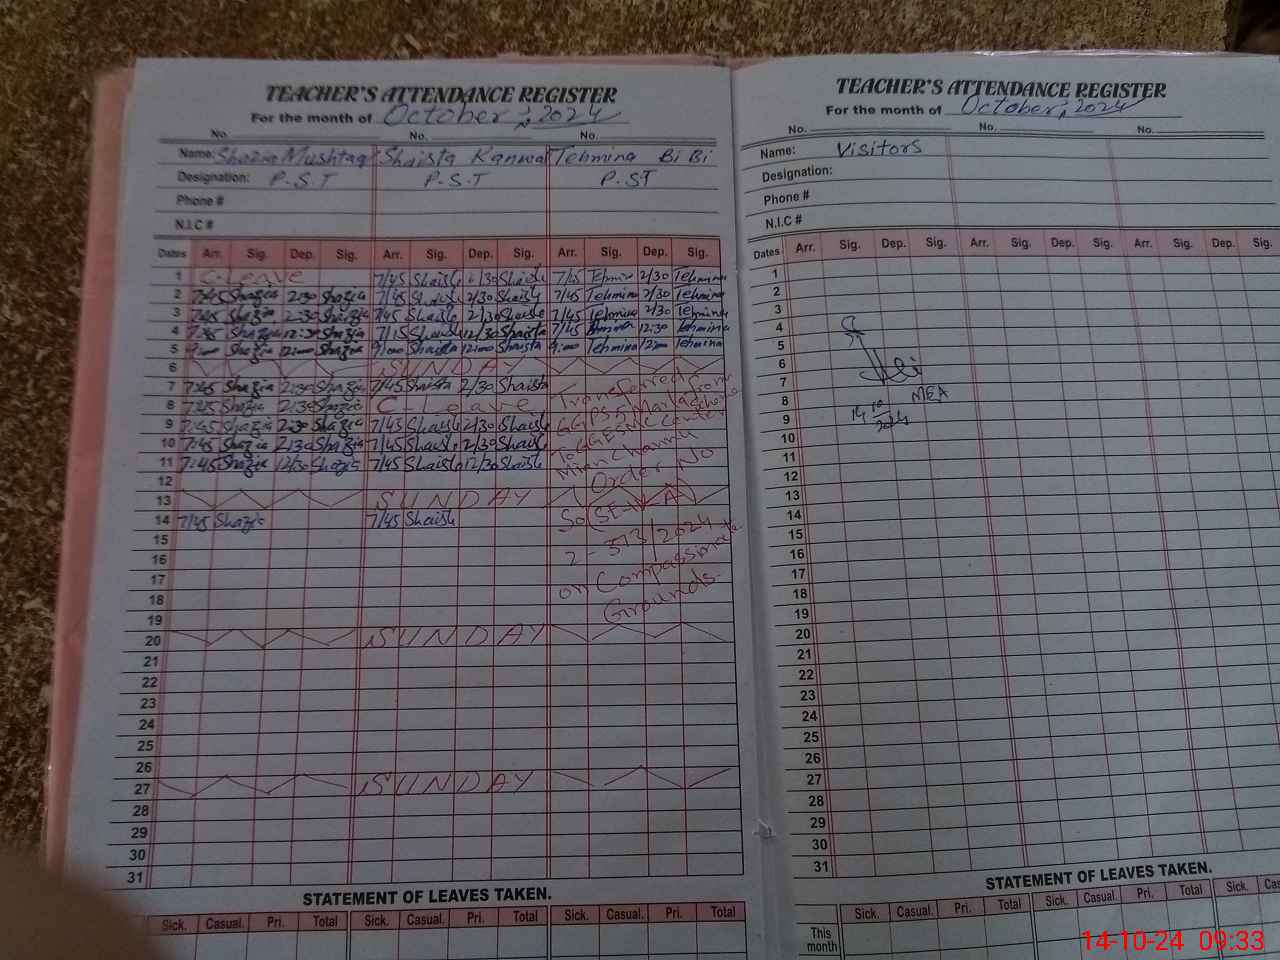 TEACHER'S ATTENDANCE REGISTER
For the month of October, 2024
No. No. No.
Name: Shazia Mushtaq Shaista Kanwal Tehmina BiBi
Designation: P.S.T P.S.T P.S.T
Phone #
N.I.C #
Dates Arr. Sig. Dep. Sig. Arr. Sig. Dep. Sig. Arr. Sig. Dep. Sig.
1 C-Leave 7/45 Shaista 2/30 Shaista 7/45 Tehmina 2/30 Tehmina
2 7:45 Shazia 2:30 Shazia 7/45 Shaista 2/30 Shaista 7/45 Tehmina 2/30 Tehmina
3 7:45 Shazia 2:30 Shazia 7/45 Shaista 2/30 Shaista 7/45 Tehmina 2/30 Tehmina
4 7:45 Shazia 12:30 Shazia 7/45 Shaista 12/30 Shaista 7/45 Tehmina 12:30 Tehmina
5 9:00 Shazia 12:00 Shazia 9:00 Shaista 12:00 Shaista 9:00 Tehmina 12:00 Tehmina
6 SUNDAY
7 7:45 Shazia 2:30 Shazia 7/45 Shaista 2/30 Shaista Transferred
8 7:45 Shazia 2:30 Shazia C-Leave from
9 7:45 Shazia 2:30 Shazia 7/45 Shaista 2/30 Shaista GGPS
10 7:45 Shazia 2:30 Shazia 7/45 Shaista 2/30 Shaista To GGES MC Center
11 7:45 Shazia 12/30 Shazia 7/45 Shaista 12/30 Shaista Mian Channu
12 Order No
13 SUNDAY
14 7/45 Shazia 7/45 Shaista So (SE-IV-A)
15
16 2-513/2024
17 on Compassionate
18 Grounds.
19
20 SUNDAY
21
22
23
24
25
26
27 SUNDAY
28
29
30
31
STATEMENT OF LEAVES TAKEN.
Sick. Casual. Pri. Total Sick. Casual. Pri. Total Sick. Casual. Pri. Total
TEACHER'S ATTENDANCE REGISTER
For the month of October, 2024
No. No. No.
Name: Visitors
Designation:
Phone #
N.I.C #
Dates Arr. Sig. Dep. Sig. Arr. Sig. Dep. Sig. Arr. Sig. Dep. Sig.
1
2
3
4
5
6
7
8 MEA
9 14 10 2024
10
11
12
13
14
15
16
17
18
19
20
21
22
23
24
25
26
27
28
29
30
31
STATEMENT OF LEAVES TAKEN.
Sick. Casual. Pri. Total Sick. Casual. Pri. Total Sick.
This month
14-10-24 09:33